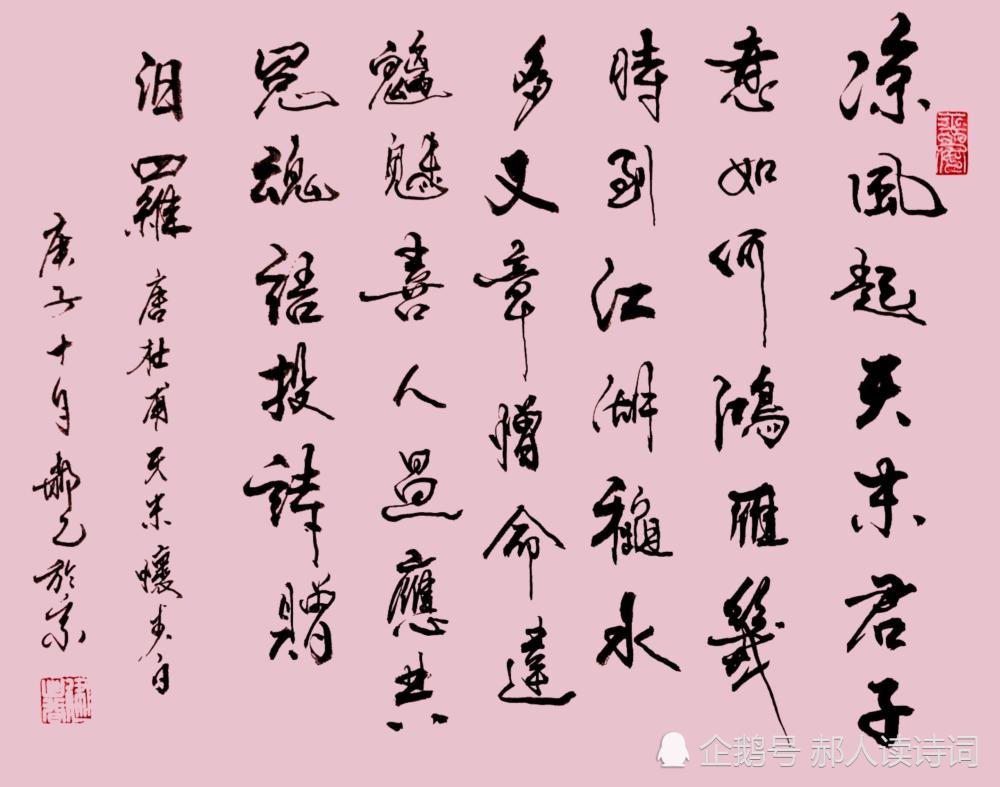 涼風起天末君子
意如何鴻雁幾
時到江湖龝水
多文章憎命達
魑魅喜人過應共
冤魂語投詩贈
汨羅 唐杜甫天末懷李白
庚子十月 於京
企鹅号 郝人读诗词